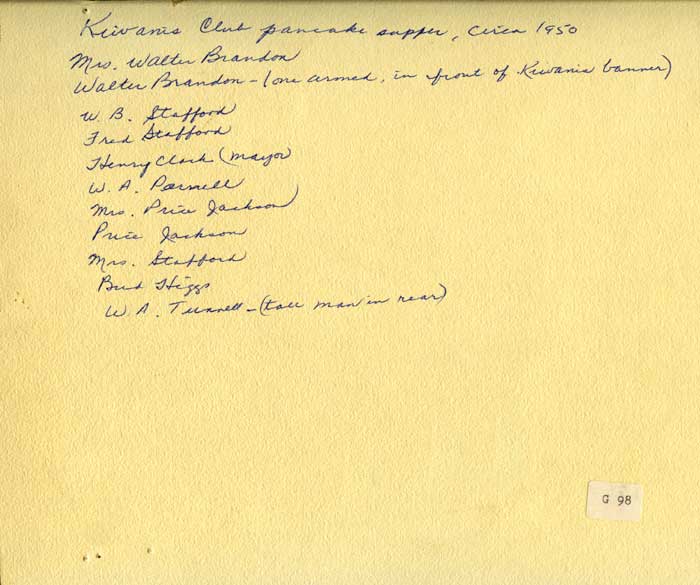 Kiwanis Club pancake supper, circa 1950
Mrs. Walter Brandon
Walter Brandon - (one armed, in front of Kiwanis banner)
W. B. Stafford
Fred Stafford
Henry Clark (mayor)
W. A. Parnell
Mrs. Price Jackson
Price Jackson
Mrs. Stafford
Bud Higgs
W. A. Tunnell - (tall man in rear)
G 98